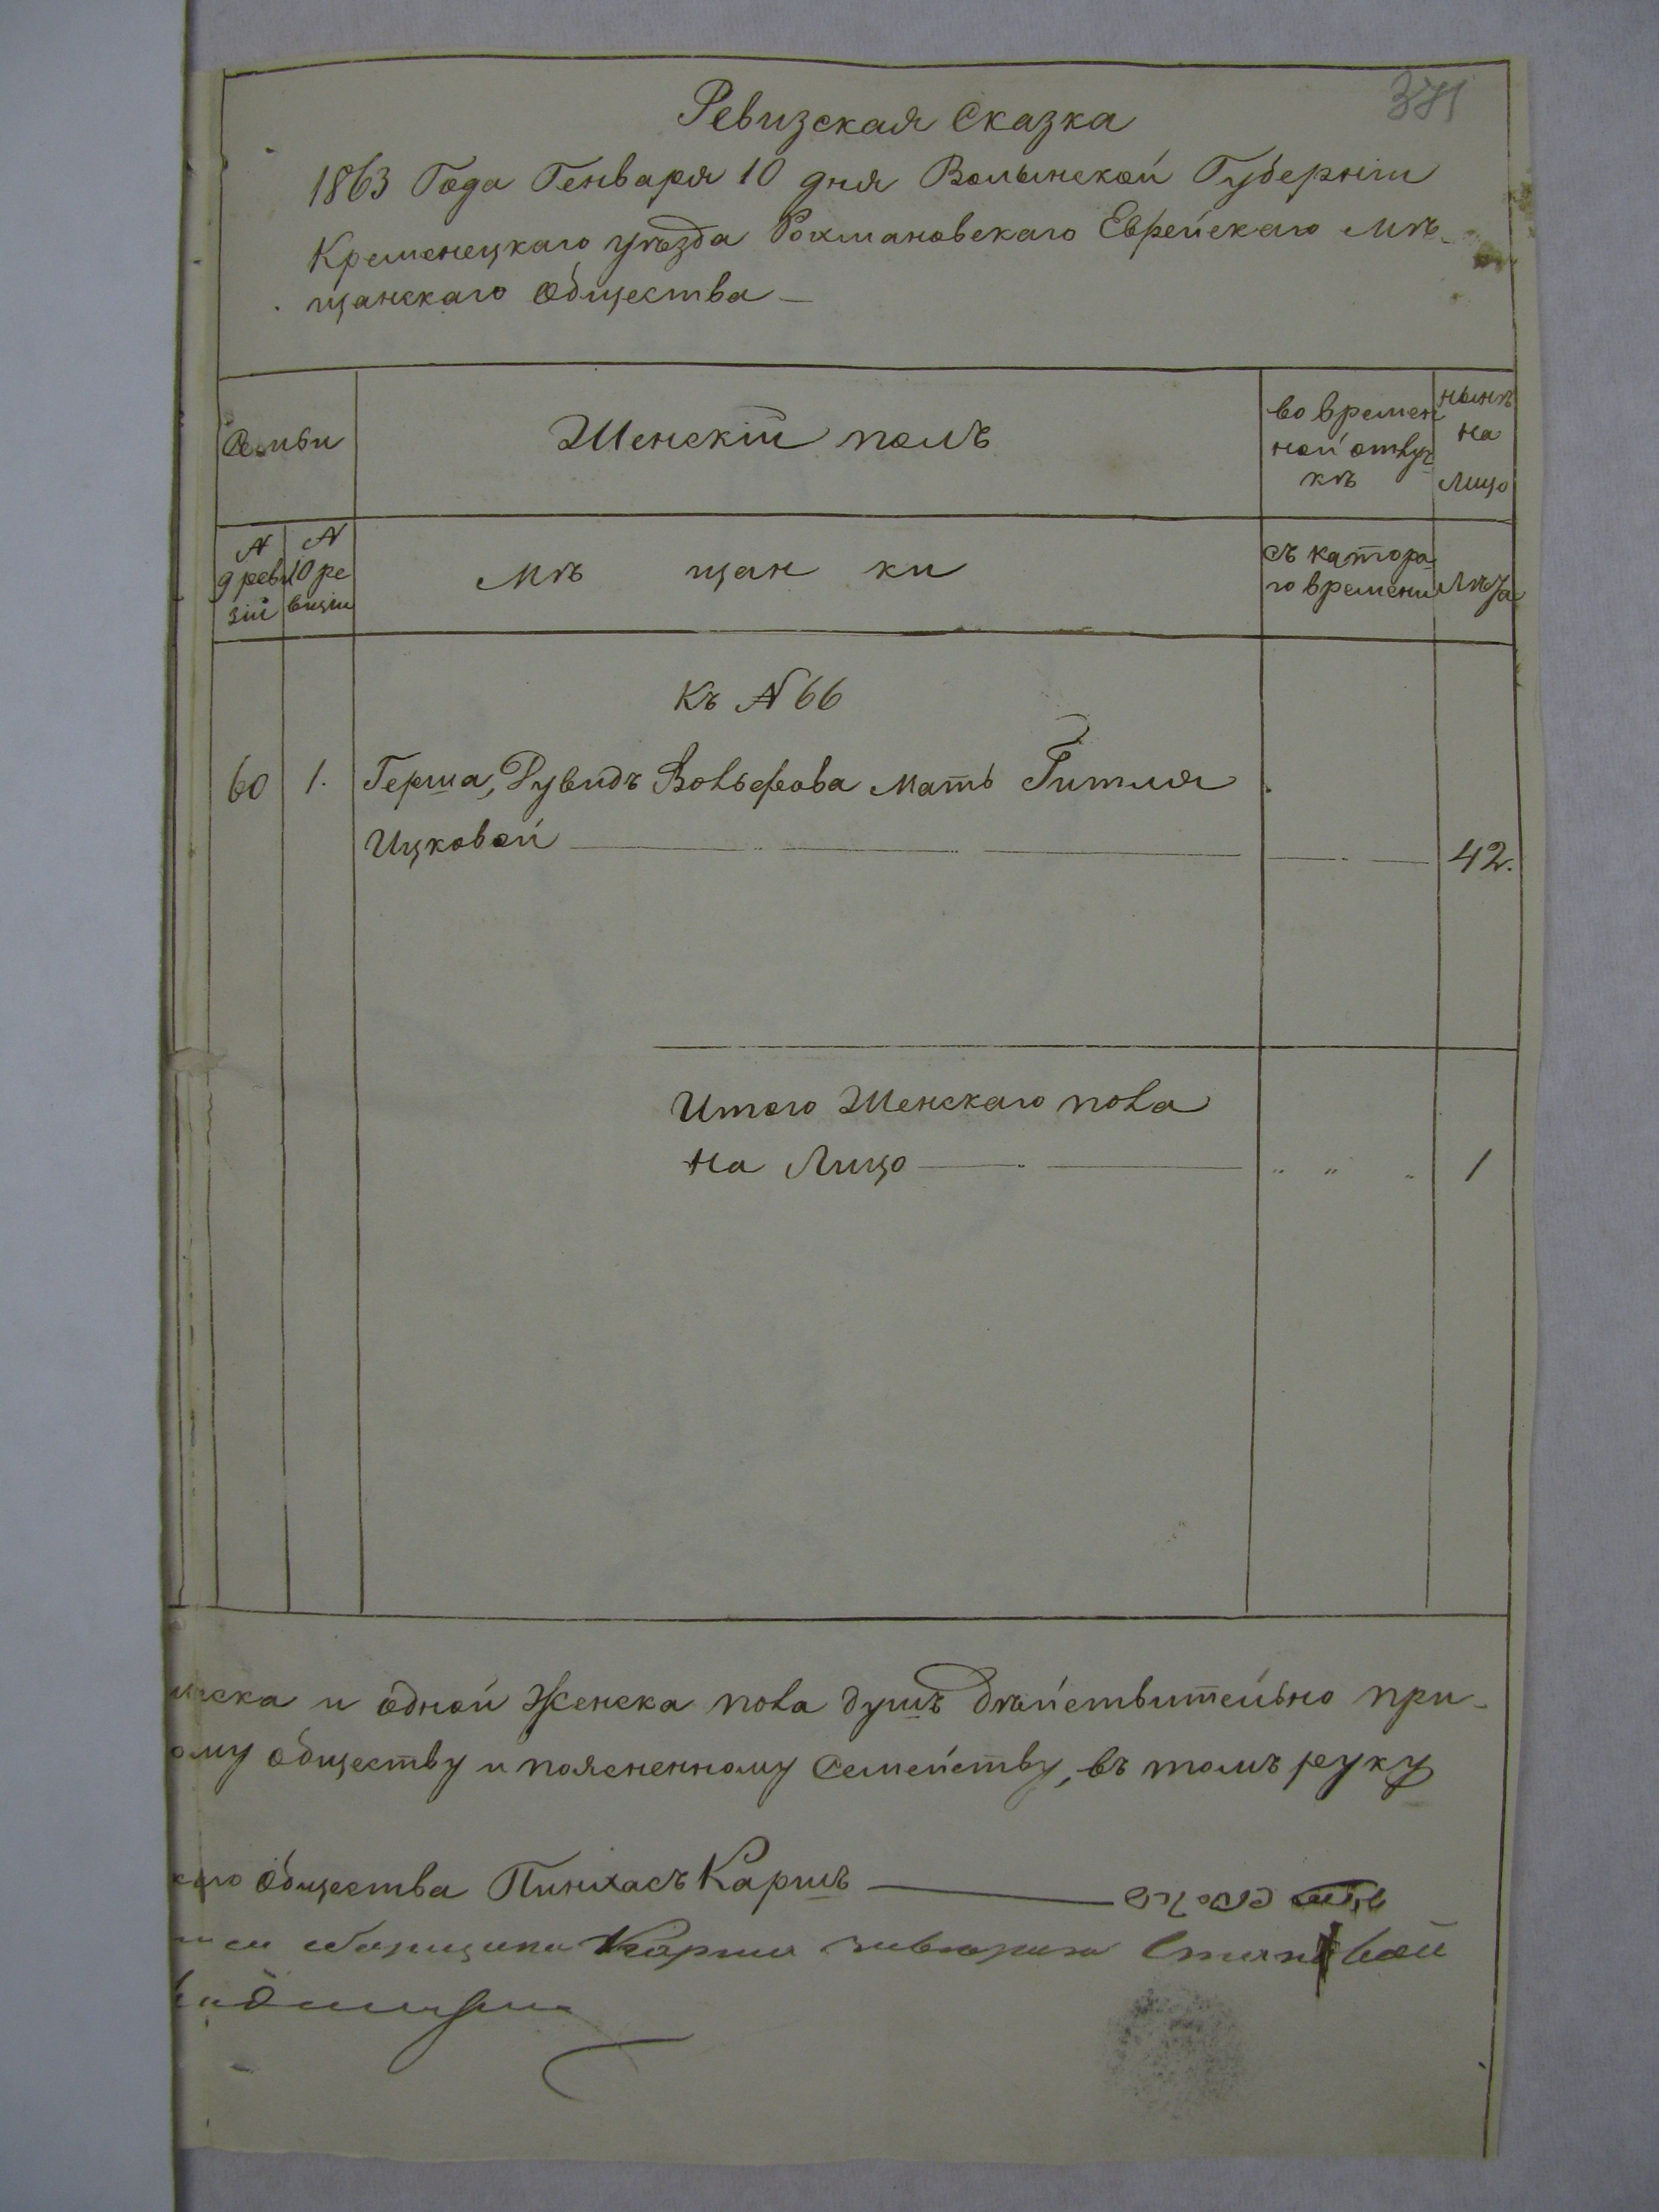 371
Ревизская Сказка
1863 Года Генваря 10 дня Волынской Губернiи
Кременецкаго уѣзда Рохмановскаго Еврейскаго Мѣ-
щанскаго Общества
Семьи
Женскiй полъ
во времен
ной отлуч
кѣ
нынѣ
на
Лицо
N
9 реви
зiи
N
10 ре
визiи
Мѣ щан ки
съ каторо
го времени
Лѣта
Къ N 66
60 1. Герша, Рувидъ Вольфова Мать Гитля
Ицковой 42.
Итого Женскаго пола
на Лицо 1
и одной Женска пола душъ дѣйствительно при-
ому обществу и поясненному Семейству, въ томъ руку
Общества Пинхасъ Каришъ